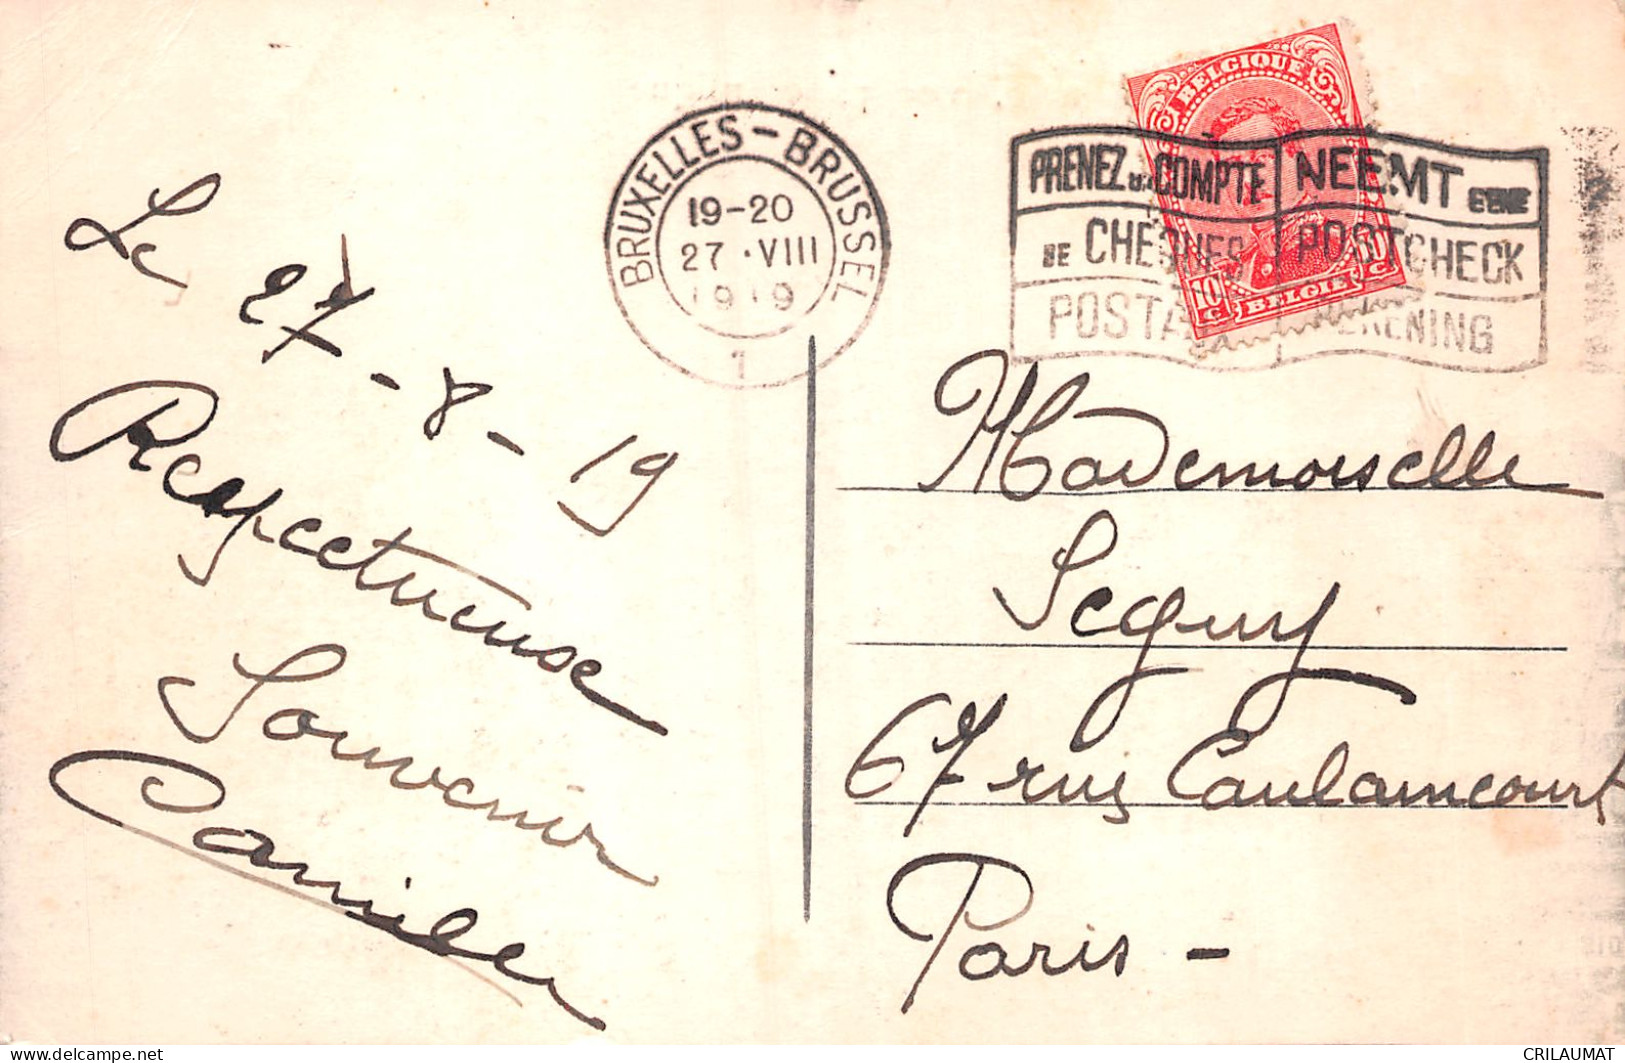 Le 27-8-19
Respectueuse
Souvenir
Camille
BRUXELLES-BRUSSEL
19-20
27·VIII
1919
1
BELGIQUE
10 C. BELGIË 10 C.
PRENEZ UN COMPTE
DE CHEQUES
POSTAUX
NEEMT EENE
POSTCHECK
REKENING
Mademoiselle
Seguy
67 rue Caulaincourt
Paris-
delcampe.net
CRILAUMAT